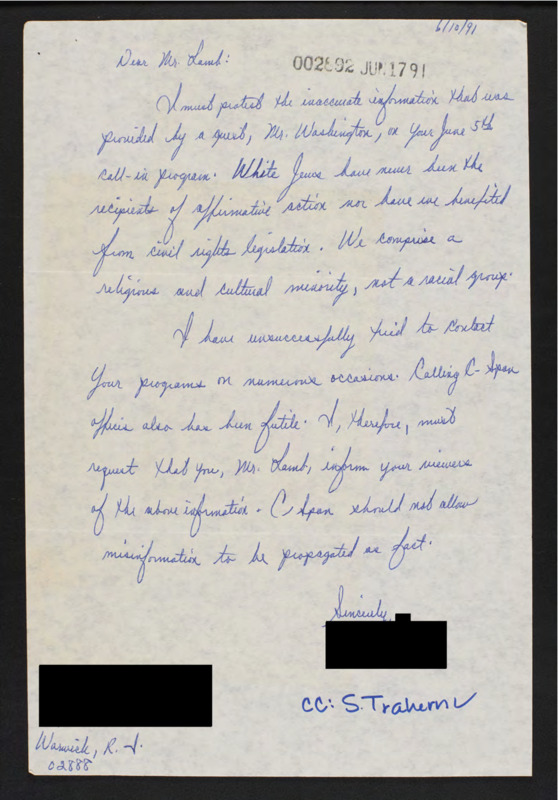 6/10/91
Dear Mr. Lamb:
002692 JUN 17 91
I must protest the inaccurate information that was
provided by a guest, Mr. Washington, on your June 5th
call-in program. White Jews have never been the
recipients of affirmative action nor have we benefited
from civil rights legislation. We comprise a
religious and cultural minority, not a racial group.
I have unsuccessfully tried to contact
your programs on numerous occasions. Calling C-Span
offices also has been futile. I, therefore, must
request that you, Mr. Lamb, inform your viewers
of the above information. C Span should not allow
misinformation to be propagated as fact.
Sincerely,
CC: S. Trahern
Warwick, R.I.
02888